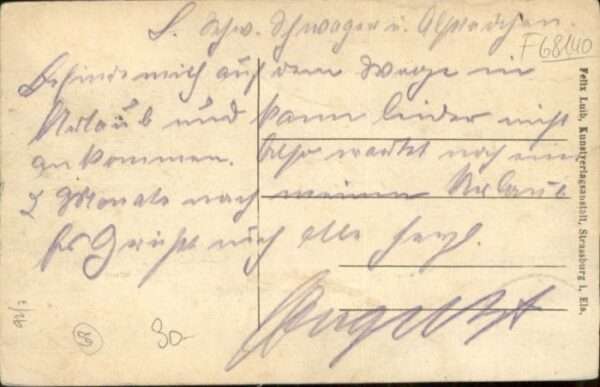 L. Schw. Schwager u.
F68140
Befinde mich auf dem Wege in
Urlaub und kann leider nicht
ankommen. Also wartet noch ein
2 Monate nach meinem Urlaub
Es Grüßt euch alle herzl.
August
Felix Luib, Kunstverlagsanstalt, Strassburg i. Els.
30-